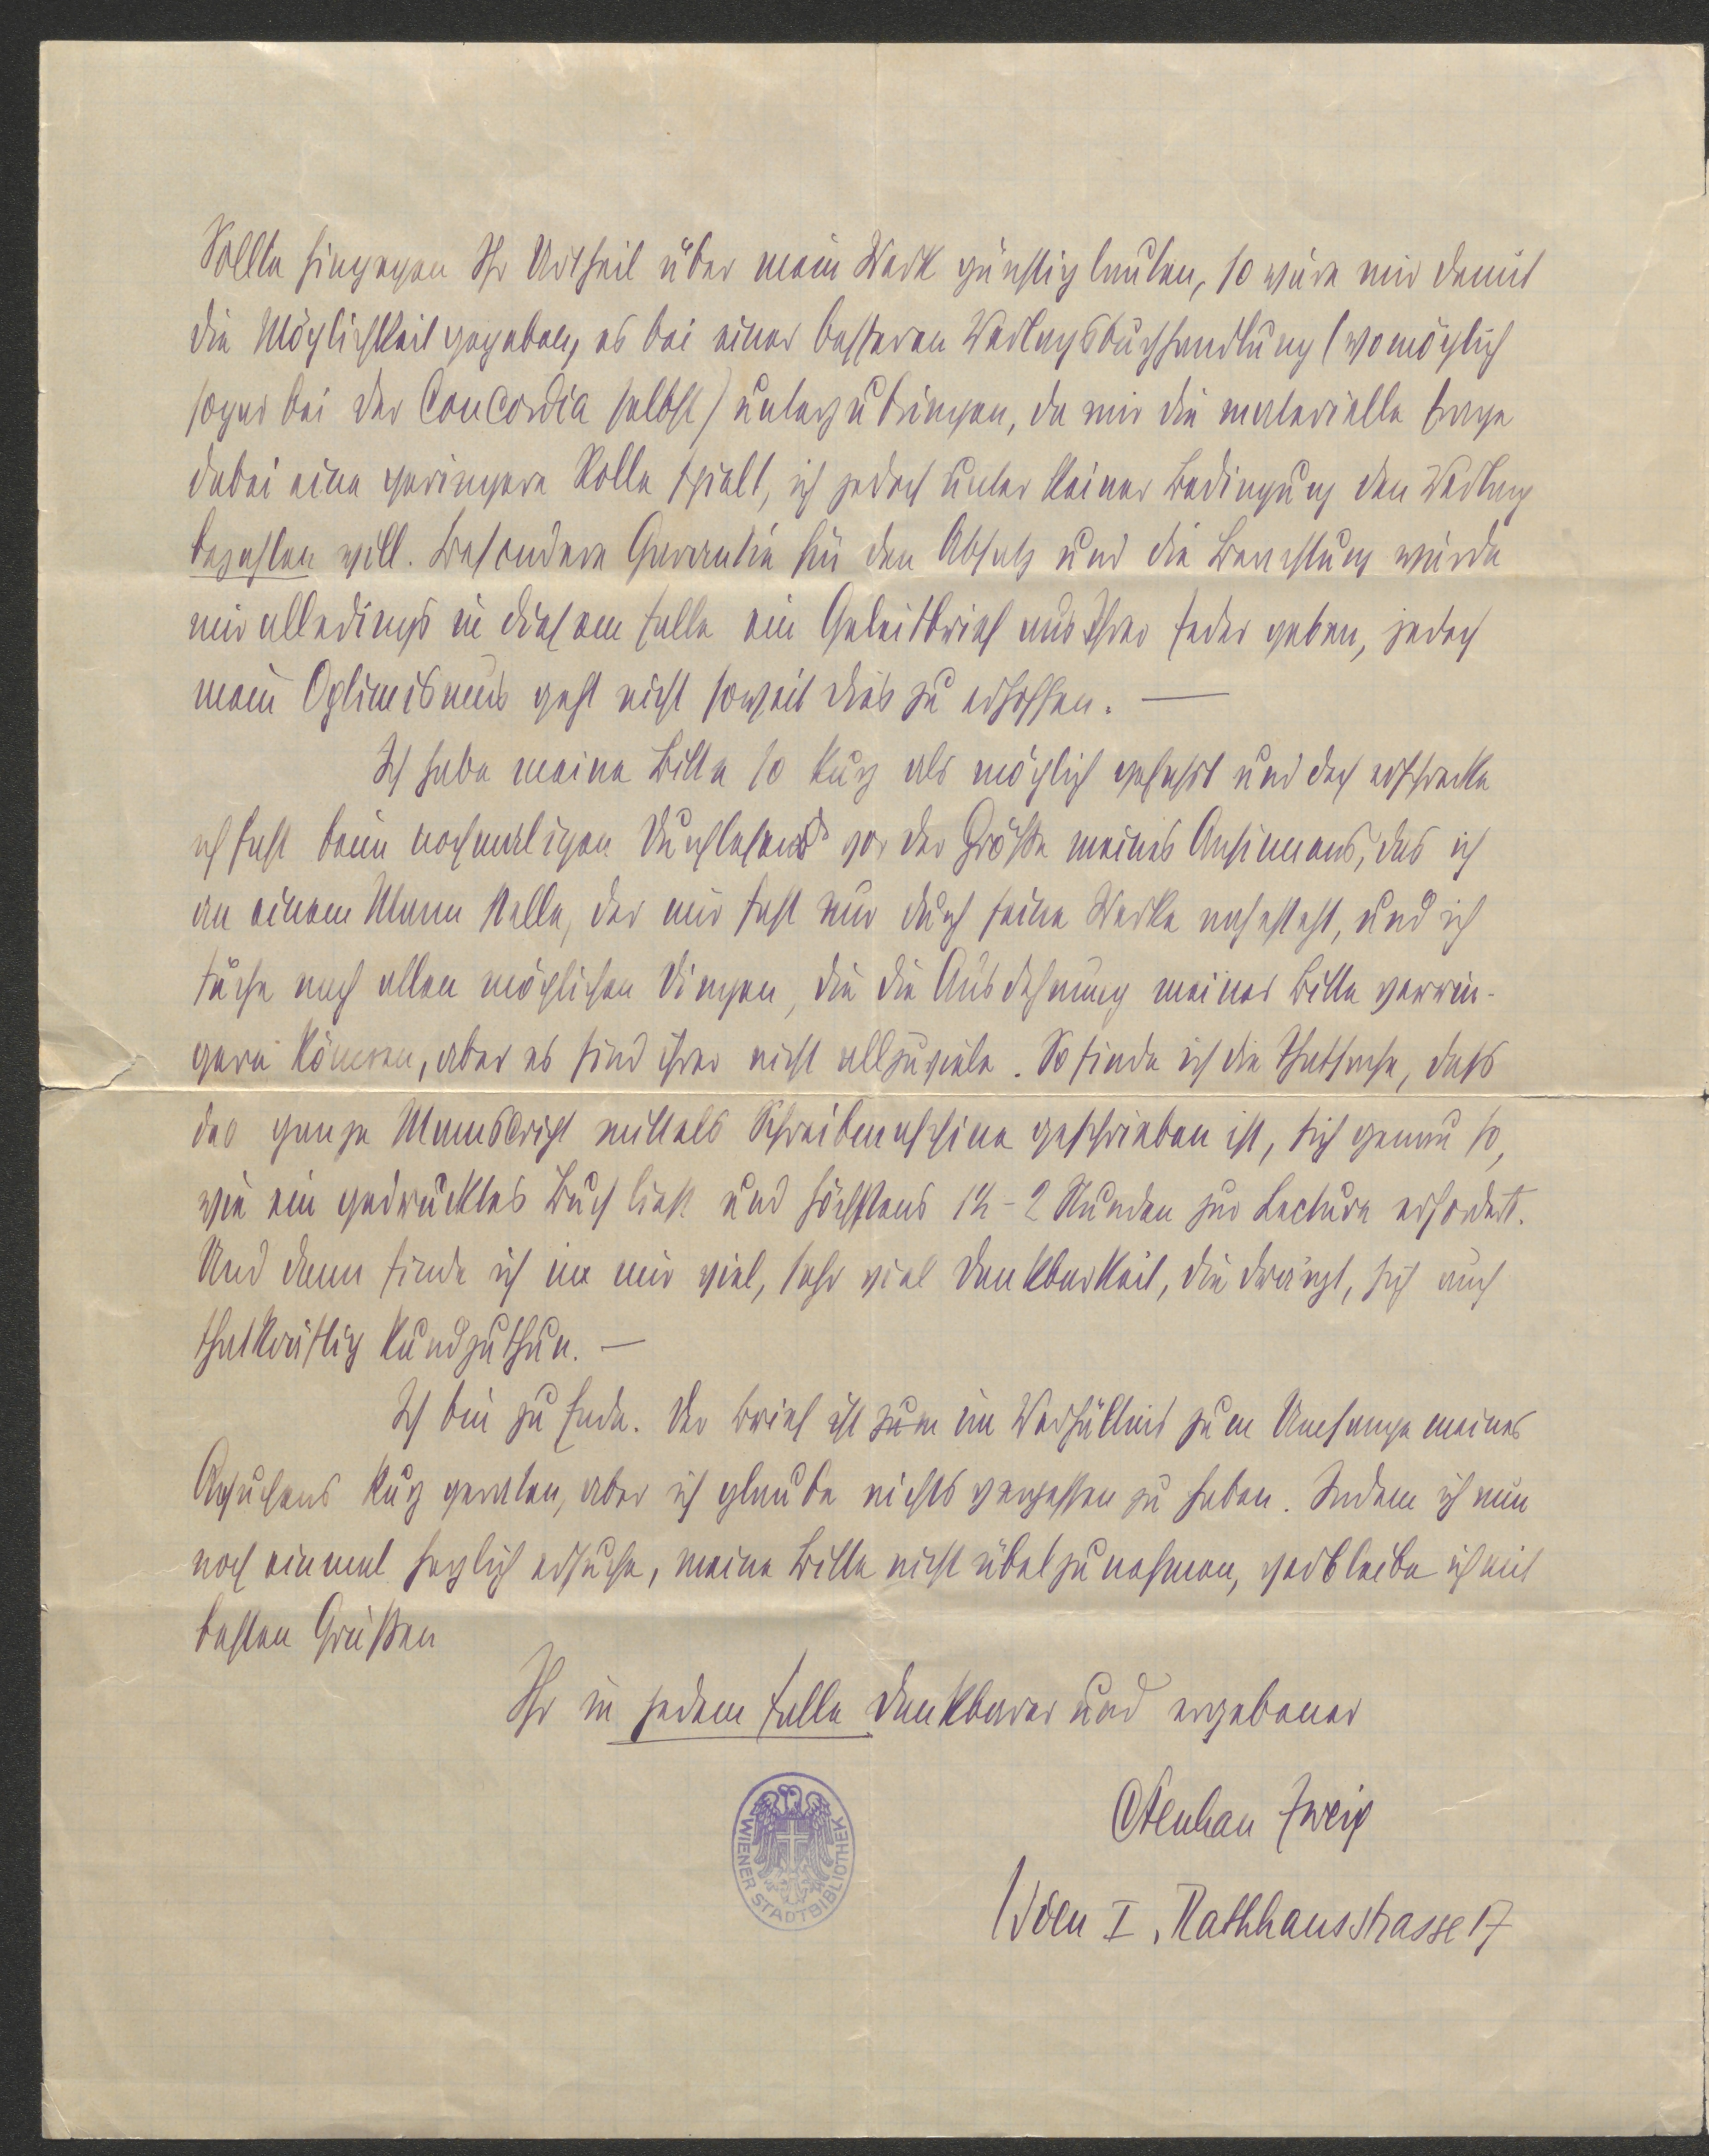 Sollte hingegen Ihr Urtheil über mein Werk günstig lauten, so wäre mir damit
die Möglichkeit gegeben, es bei einer besseren Verlagsbuchhandlung (womöglich
sogar bei der Concordia selbst) unterzubringen, da mir die materielle Frage
dabei eine geringere Rolle spielt, ich jedoch unter keiner Bedingung den Verlag
bezahlen will. Besondere Garantie für den Absatz und die Beachtung würde
mir allerdings in diesem Falle ein Geleitbrief aus Ihrer Feder geben, jedoch
mein Optimismus geht nicht soweit dies zu erhoffen. —
Ich habe meine Bitte so kurz als möglich gefasst und doch erschrecke
ich fast beim nochmaligen Durchlesen vor der Größe meines Ansinnens, das ich
an einem Mann stelle, der mir fast nur durch seine Werke nahesteht, und ich
suche nach allen möglichen Dingen, die die Ausdehnung meiner Bitte verrin-
gern können, aber es sind ihrer nicht allzuviele. So finde ich die Thatsache, dass
das ganze Manuscript mittels Schreibmaschine geschrieben ist, sich genau so,
wie ein gedrucktes Buch liest und höchstens 1½-2 Stunden zur Lecture erfordert.
Und dann finde ich in mir viel, sehr viel Dankbarkeit, die drängt, sich auch
thatkräftig kundzuthun. —
Ich bin zu Ende. Der Brief ist zum im Verhältnis zum Umfange meines
Ansuchens kurz geraten, aber ich glaube nichts vergessen zu haben. Indem ich nun
noch einmal herzlich ersuche, meine Bitte nicht übel zu nehmen, verbleibe ich mit
besten Grüßen
Ihr in jedem Falle dankbarer und ergebener
Stephan Zweig
Wien I, Rathhausstrasse 17
WIENER STADTBIBLIOTHEK